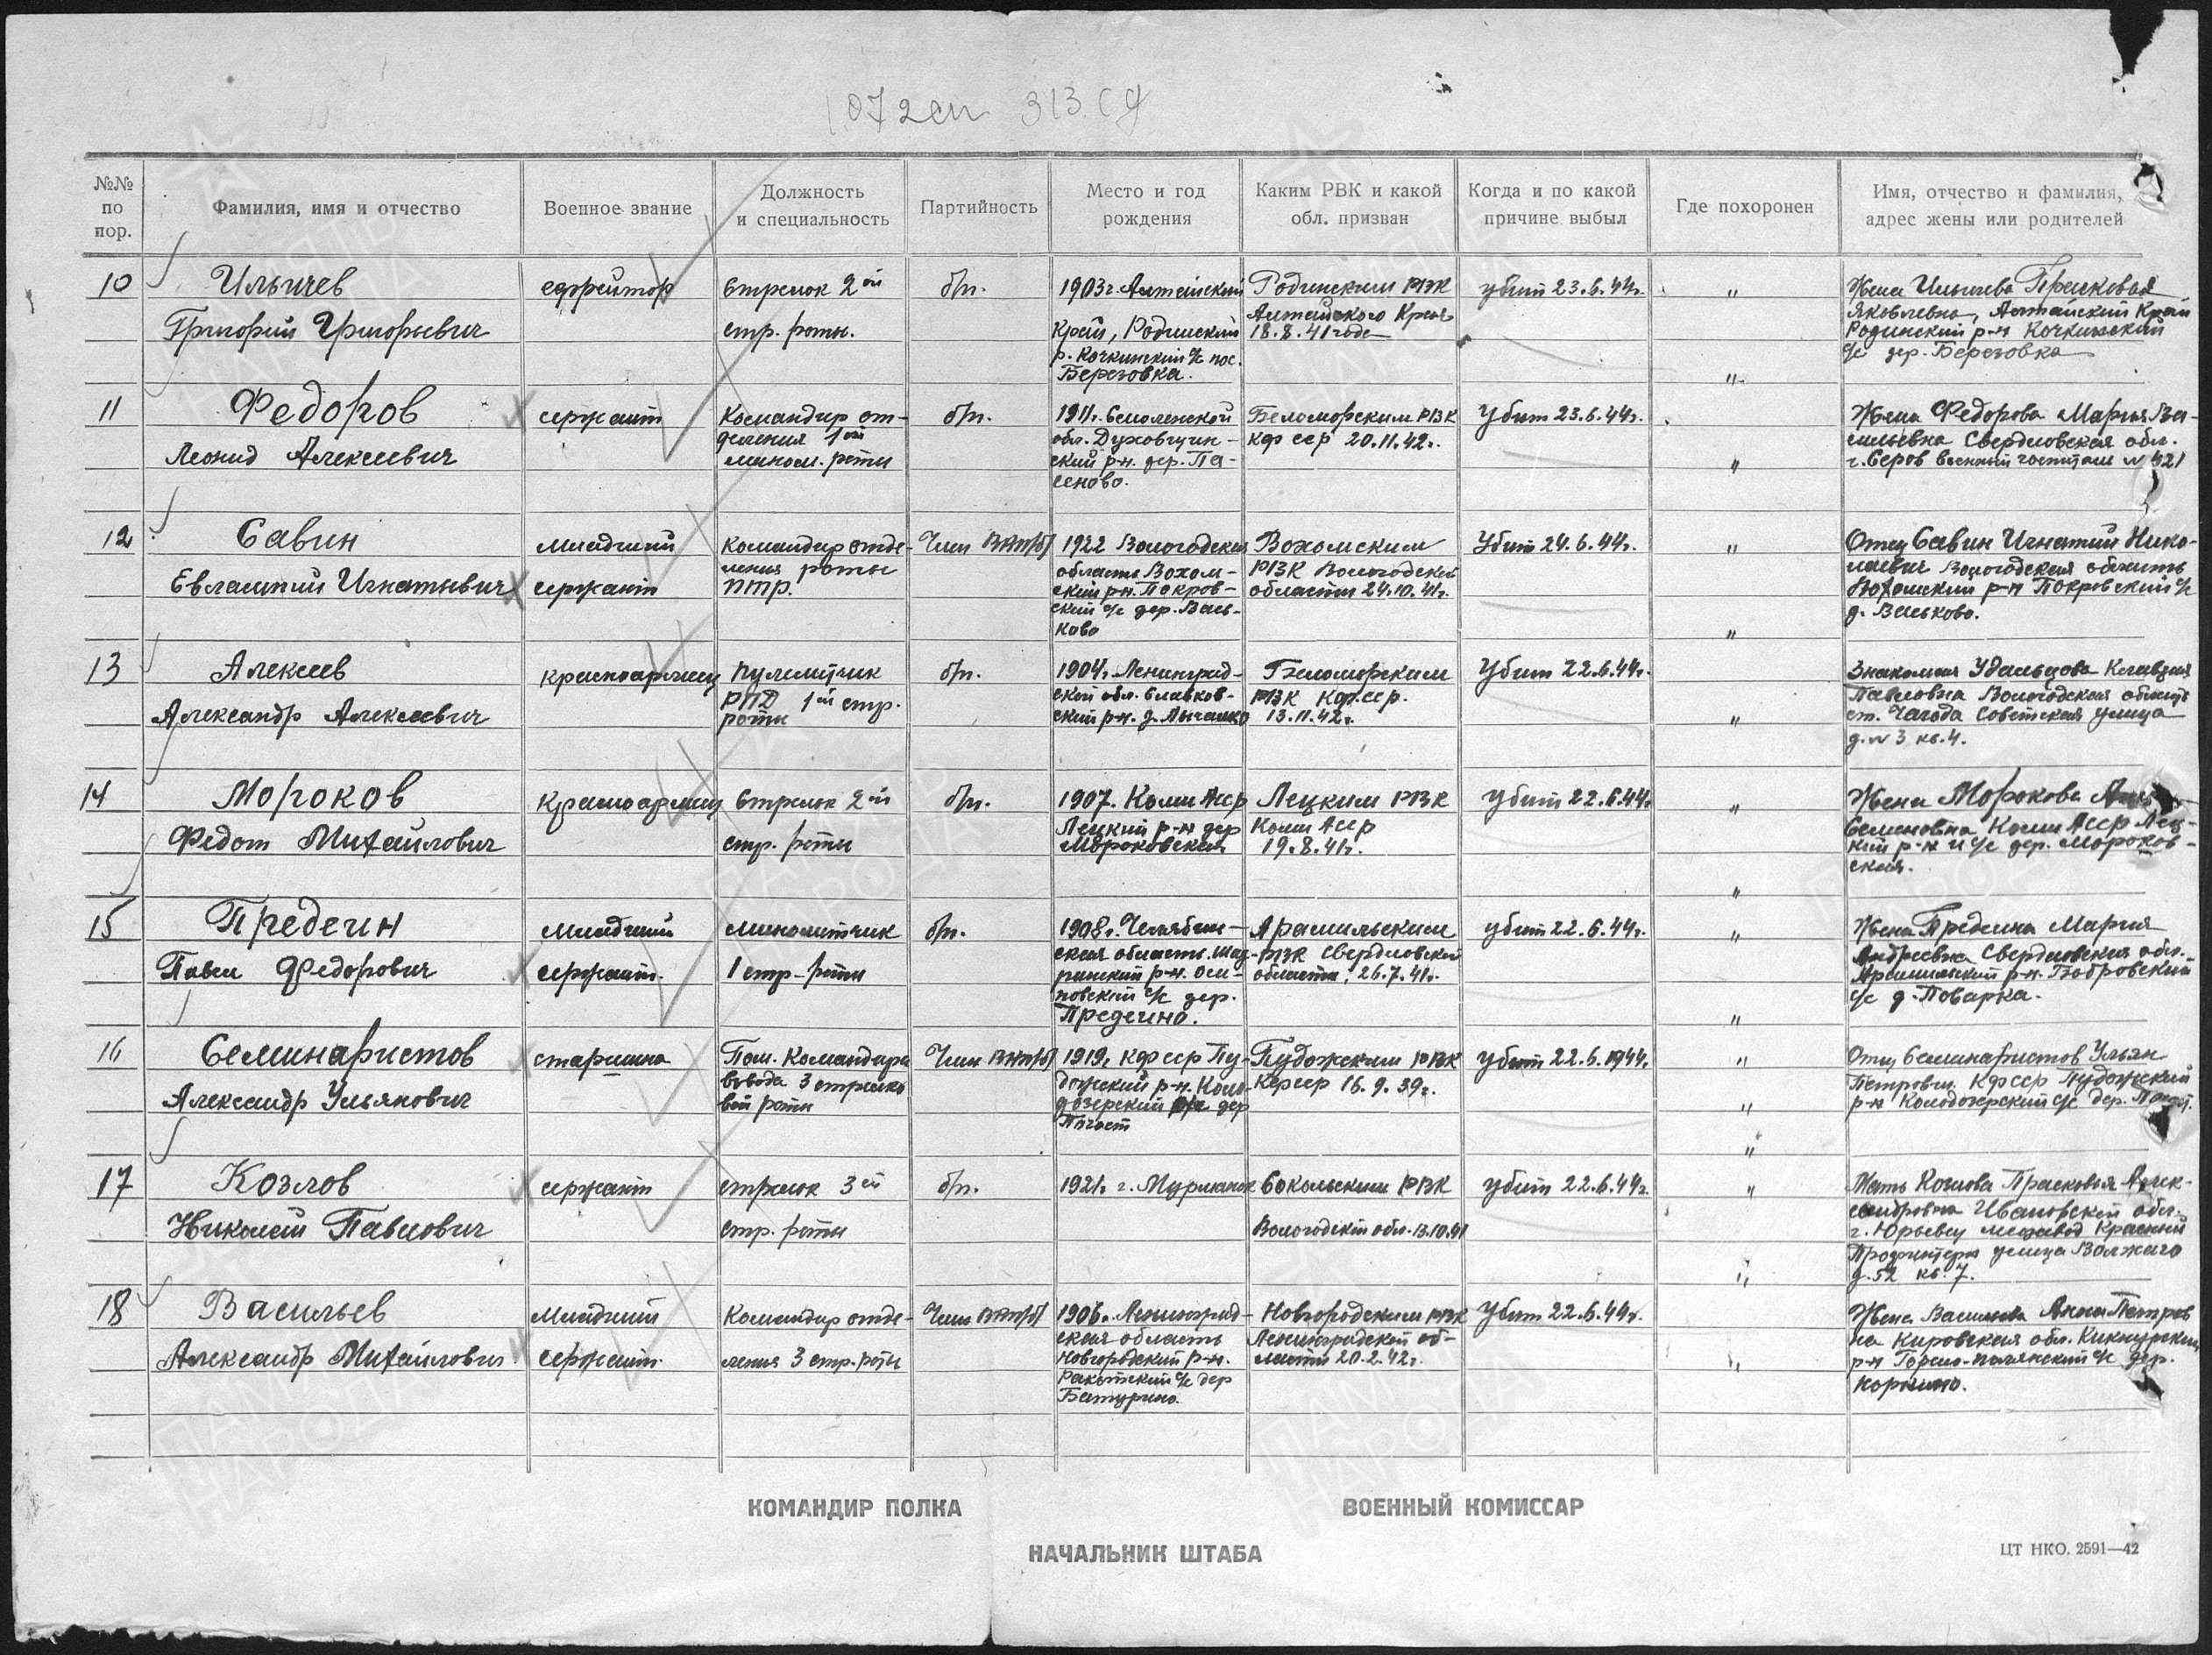 1072сп 313 сд
№№ по пор.
Фамилия, имя и отчество
Военное звание
Должность и специальность
Партийность
Место и год рождения
Каким РВК и какой обл. призван
Когда и по какой причине выбыл
Где похоронен
Имя, отчество и фамилия, адрес жены или родителей
10
Ильичев
Григорий Григорьевич
ефрейтор
Стрелок 2ой
стр. роты.
б/п.
1903г. Алтайский
Край, Родинский
р. Кочкинский с/с пос.
Березовка.
Родинским РВК
Алтайского Края
18.8.41 года
убит 23.6.44г.
"
"
Жена Ильичева Прасковья
Яковлевна, Алтайский Край
Родинский р-н Кочкинский
с/с дер. Березовка
11
Федоров
Леонид Алексеевич
сержант
Командир от-
деления 1ой
мином. роты
б/п.
1911г. Смоленской
обл. Духовщин-
ский р-н. дер. Па-
сеново.
Беломорским РВК
Кф сср 20.11.42г.
Убит 23.6.44г.
"
Жена Федорова Мария Ва-
сильевна Свердловская обл.
г. Серов военный госпиталь
12
Савин
Евлампий Игнатьевич
младший
сержант
Командир отде-
ления роты
ПТР.
Член ВКП(б)
1922 Вологодская
область Вохом-
ский р-н. Покров-
ский с/с дер. Вась-
ково
Вохомским
РВК Вологодской
области 24.10.41г.
Убит 24.6.44г.
"
"
Отец Савин Игнатий Нико-
лаевич Вологодская область
Вохомский р-н Покровский с/с
д. Васьково.
13
Алексеев
Александр Алексеевич
красноармеец
пулеметчик
РПД 1ой стр.
роты
б/п.
1904г. Ленинград-
ской обл. Славков-
ский р-н. д.
Беломорским
РВК Кф.сср.
13.11.42г.
Убит 22.6.44г.
"
Знакомая Удальцова Клавдия
Павловна Вологодская область
ст. Чагода Советская улица
д. № 3 кв. 4.
14
Мороков
Федот Михайлович
Красноармеец
Стрелок 2ой
стр. роты
б/п.
1907. Коми Асср
Лецкий р-н дер
Мороковская
Лецким РВК
Коми Асср
19.8.41г.
убит 22.6.44г.
"
"
Жена Морокова
Семеновна Коми Асср Лец-
кий р-н и с/с дер. Мороков-
ская.
15
Предеин
Павел Федорович
младший
сержант.
минометчик
1 стр-роты
б/п.
1908г. Челябин-
ская область. Шад-
ринский р-н. Оси-
новский с/с дер.
Предеино.
Арамильским
РВК Свердловской
области. 26.7.41г.
убит 22.6.44г.
"
"
Жена Предеина Мария
Андреевна Свердловская обл.
Арамильский р-н. Бобровский
с/с д. Поварка.
16
Семинаристов
Александр Ульянович
старшина
Пом. Командира
взвода 3 стрелко
вой роты
Член ВКП(б)
1919г. Кф сср Пу-
дожский р-н. Коло-
дозерский с/с дер
Погост
Пудожским РВК
Кфсср 16.9.39г.
убит 22.6.1944г.
"
"
"
Отец Семинаристов Ульян
Петрович Кф ССР Пудожский
р-н Колодозерский с/с дер. Погост.
17
Козлов
Николай Павлович
сержант
стрелок 3ей
стр. роты
б/п.
1921г. г. Мурманск
Сокольским РВК
Вологодской обл. 13.10.41
убит 22.6.44г.
"
"
Мать Козлова Прасковья Алек-
сандровна Ивановской обл.
г. Юрьевец мехзавод Красный
Профинтерн улица
д. 52 кв. 7.
18
Васильев
Александр Михайлович
Младший
сержант.
Командир отде-
ления 3 стр. роты
Член ВКП(б)
1906г. Ленинград-
ская область
Новгородский р-н.
Ракомский с/с дер
Батурино.
Новгородским РВК
Ленинградской об-
ласти 20.2.42г.
Убит 22.6.44г.
"
Жена Васильева Анна Петров
на Кировская обл. Кикнурский
р-н с/с дер.
КОМАНДИР ПОЛКА
ВОЕННЫЙ КОМИССАР
НАЧАЛЬНИК ШТАБА
ЦТ НКО. 2591—42